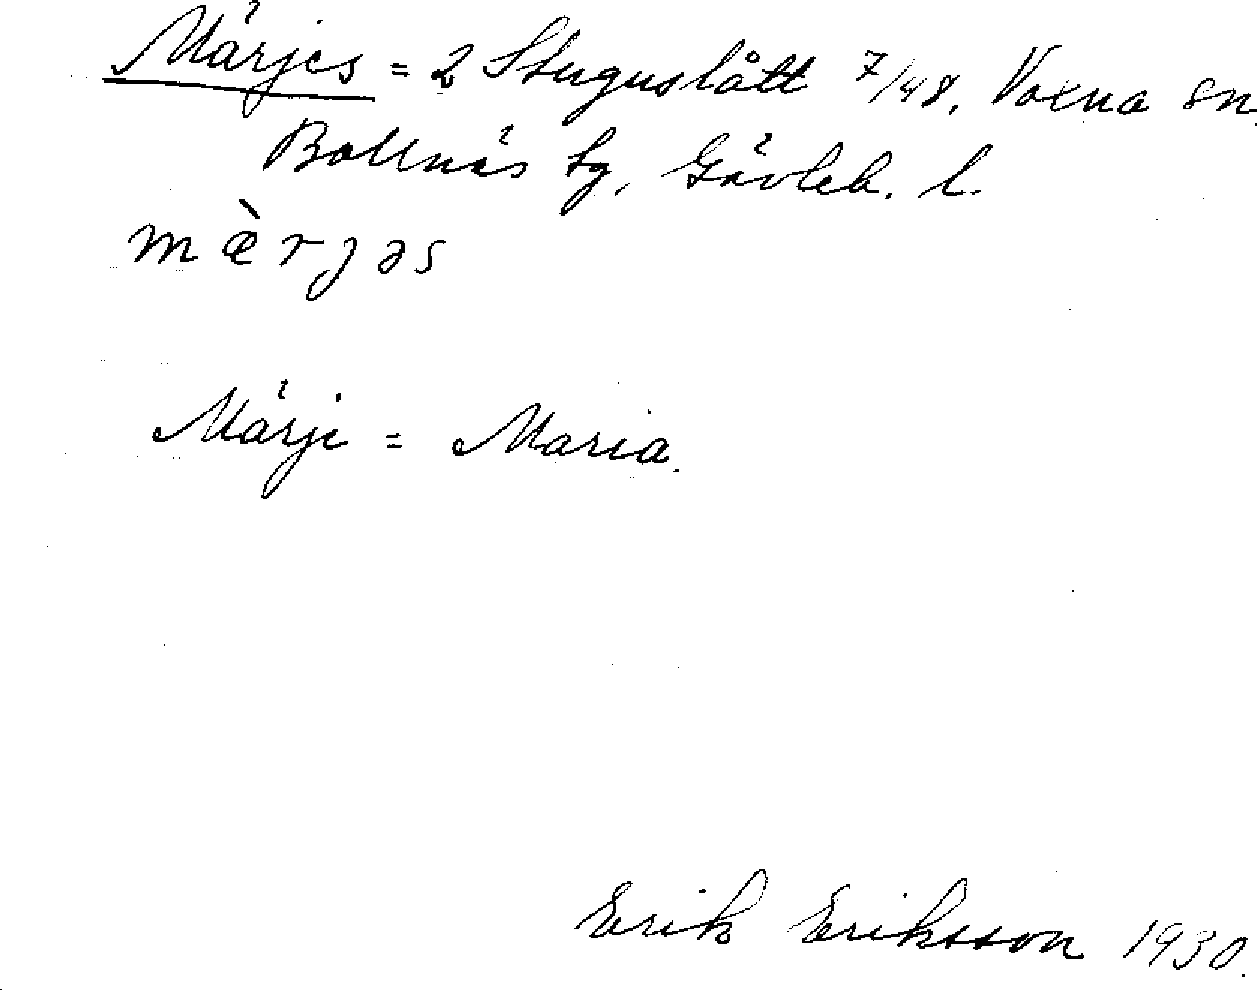 Märjes = 2 Stuguslått 7/48, Voxna sn.
Bollnäs tg, Gävleb. l.
mæ̀rjəs
Märji = Maria.
Erik Eriksson 1930.